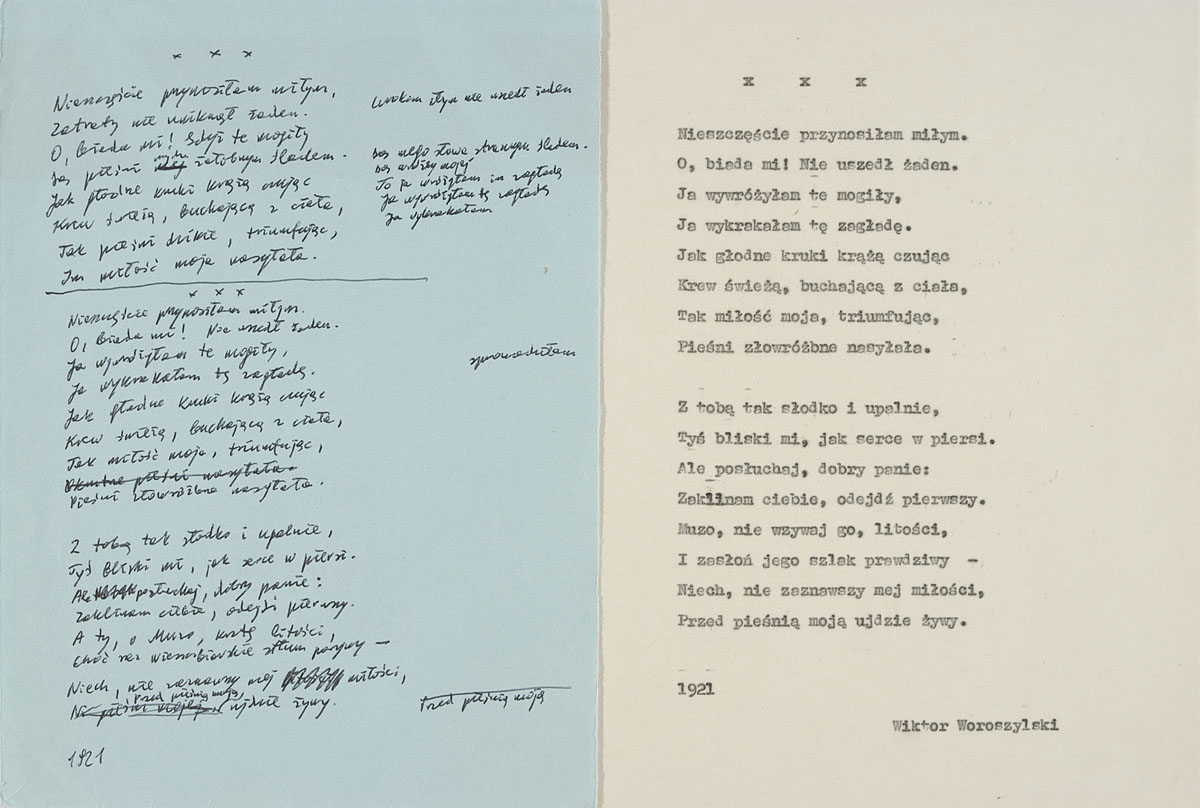 x x x
Nieszczęście przynosiłam miłym,
Zatraty nie uniknął żaden.
O, biada mi! Gdyż te mogiły
Są pieśni mojej żałobnym śladem.
Jak głodne kruki krążą czując
Krew świeżą, buchającą z ciała,
Tak pieśni dzikie, triumfując,
Im miłość moja nasyłała.
urokom złym nie uszedł żaden
słowa strasznym śladem.
To ja wróżyłam im zagładę
Ja wywróżyłam tę zagładę
Ja wykrakałam
x x x
Nieszczęście przynosiłam miłym.
O, biada mi! Nie uszedł żaden.
Ja wywróżyłam te mogiły,
Ja wykrakałam tę zagładę.
Jak głodne kruki krążą czując
Krew świeżą, buchającą z ciała,
Tak miłość moja, triumfując,
Okrutne pieśni nasyłała.
Pieśni złowróżbne nasyłała.
sprowadziłam
Z tobą tak słodko i upalnie,
Tyś bliski mi, jak serce w piersi.
Ale posłuchaj, dobry panie:
Zaklinam ciebie, odejdź pierwszy.
A ty, o Muzo, krztę litości,
Choć raz wieszczbiarskie stłum porywy —
Niech, nie zaznawszy mej miłości,
Przed pieśnią moją,
ujdzie żywy.
Przed pieśnią moją
1921
x x x
Nieszczęście przynosiłam miłym.
O, biada mi! Nie uszedł żaden.
Ja wywróżyłam te mogiły,
Ja wykrakałam tę zagładę.
Jak głodne kruki krążą czując
Krew świeżą, buchającą z ciała,
Tak miłość moja, triumfując,
Pieśni złowróżbne nasyłała.
Z tobą tak słodko i upalnie,
Tyś bliski mi, jak serce w piersi.
Ale posłuchaj, dobry panie:
Zaklinam ciebie, odejdź pierwszy.
Muzo, nie wzywaj go, litości,
I zasłoń jego szlak prawdziwy -
Niech, nie zaznawszy mej miłości,
Przed pieśnią moją ujdzie żywy.
1921
Wiktor Woroszylski